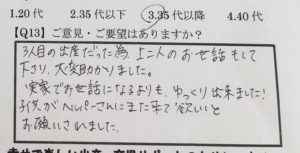 1.20代 2.35代以下 3.35代以降 4.40代
【Q13】ご意見・ご要望はありますか？
3人目の出産だった為、上二人のお世話もして
下さり、大変助かりました。
実家でお世話になるよりも、ゆっくり出来ました!
子供がNurseさんにまた来て欲しいと
お願いされました。